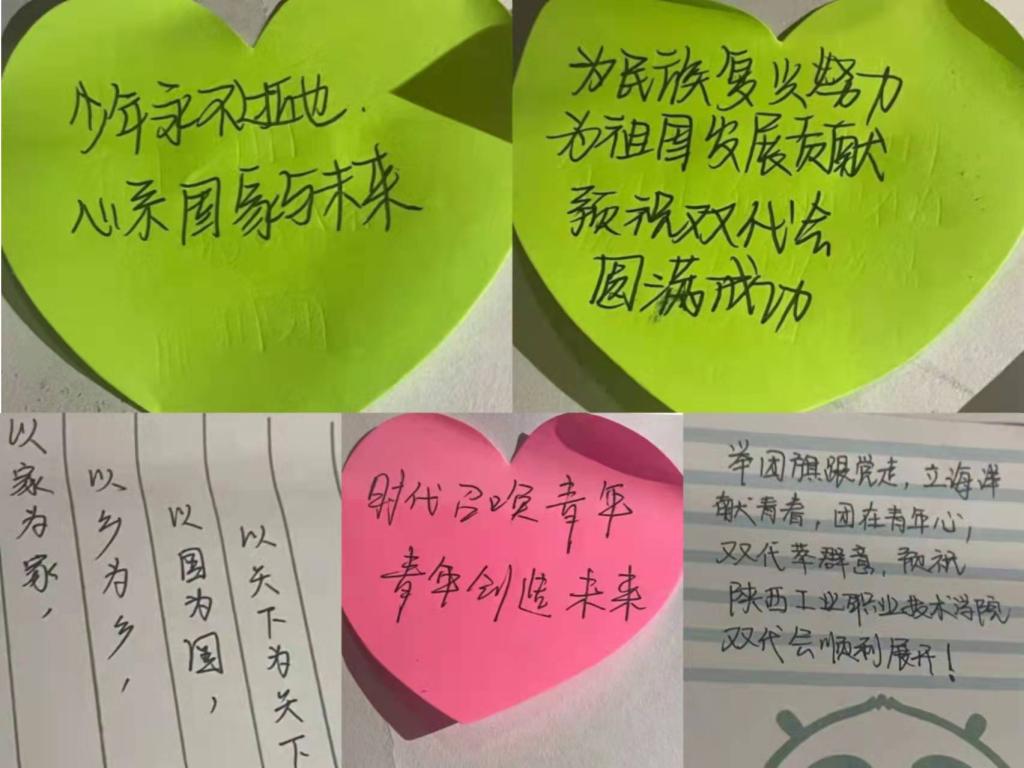 少年永不
心系国家与未来
为民族复兴努力
为祖国发展贡献
预祝双代会
圆满成功
以家为家，
以乡为乡，
以国为国，
以天下为天下
时代召唤青年
青年创造未来
举团旗跟党走，立海洋
献青春，团在青年心，
双代萃群意，预祝
陕西工业职业技术学院
双代会顺利展开！